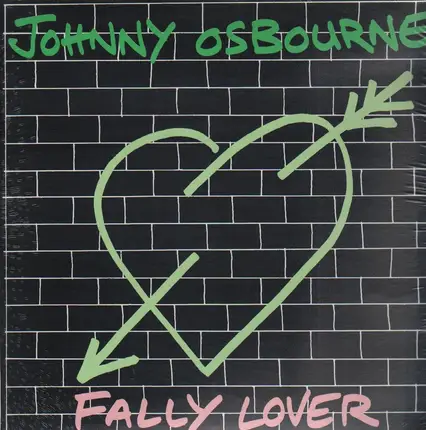 JOHNNY OSBOURNE
FALLY LOVER